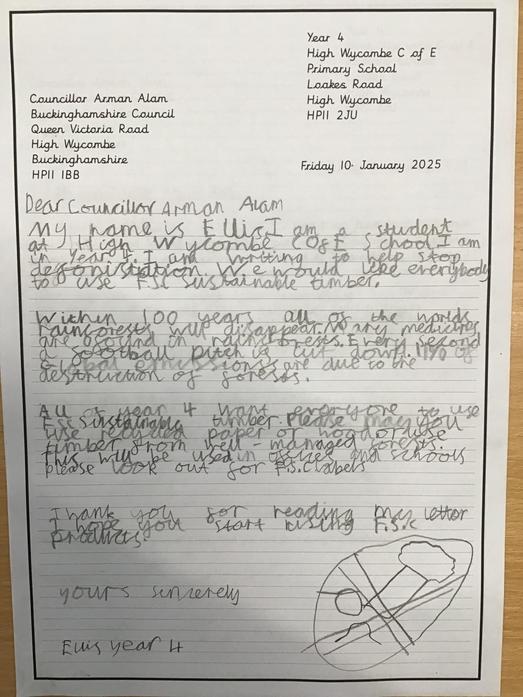 Year 4
High Wycombe C of E
Primary School
Loakes Road
High Wycombe
HP11 2JU
Councillor Arman Alam
Buckinghamshire Council
Queen Victoria Road
High Wycombe
Buckinghamshire
HP11 1BB
Friday 10 January 2025
Dear Councillor Arman Alam
My name is Ellis, I am a student
at High Wycombe COfE School I am
in year 4. I am writing to help stop
We would like everybody
to use FSC sustainable timber.
Within 100 years all of the worlds
rainforests will disappear. Many medicines
are found in rainforests. Every second
a football pitch is cut down. 11% of
Global emissions are due to the
destruction of forests.
All of year 4 want everyone to use
FSC sustainable timber. Please may you
use recycled paper or wood or use
timber from well-managed forests.
This will be used in offices and schools
please look out for F.S.C labels
Thank you for reading my letter
I hope you start using F.S.C
products.
yours sincerely
Ellis year 4